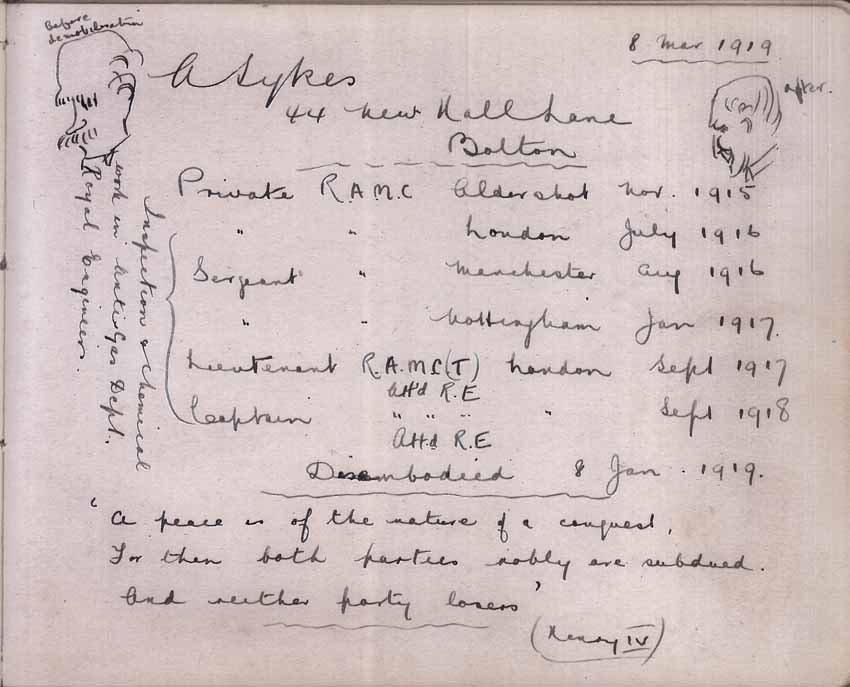 Before
demobilisation
8 Mar 1919
A Sykes
after.
44 New Hall Lane
Bolton
Private R.A.M.C Aldershot Nov. 1915
" " London July 1916
Sergeant " Manchester Aug 1916
" " Nottingham Jan 1917.
Lieutenant R.A.M.C(T) London Sept 1917
Att'd R.E
Captain " " " " Sept 1918
Att.d R.E
Disembodied 8 Jan. 1919.
Inspection & chemical
work in Anti Gas Dept.
Royal Engineers.
"A peace is of the nature of a conquest,
For then both parties nobly are subdued.
And neither party losers"
(Henry IV)